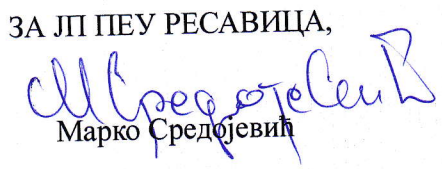 ЗА ЈП ПЕУ РЕСАВИЦА,
М Средојевић
Марко Средојевић